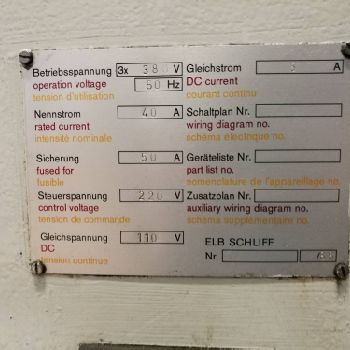 Betriebsspannung 3x 380 V
operation voltage 50 Hz
tension d'utilisation
Nennstrom 40 A
rated current
intensité nominale
Sicherung 50 A
fused for
fusible
Steuerspannung 220 V
control voltage
tension de commande
Gleichspannung 110 V
DC
tension continue
Gleichstrom A
DC current
courant continu
Schaltplan Nr.
wiring diagram no.
schéma électrique no.
Geräteliste Nr.
part list no.
nomenclature de l'appareillage no.
Zusatzplan Nr.
auxiliary wiring diagram no.
schéma supplémentaire no.
ELB SCHLIFF
Nr